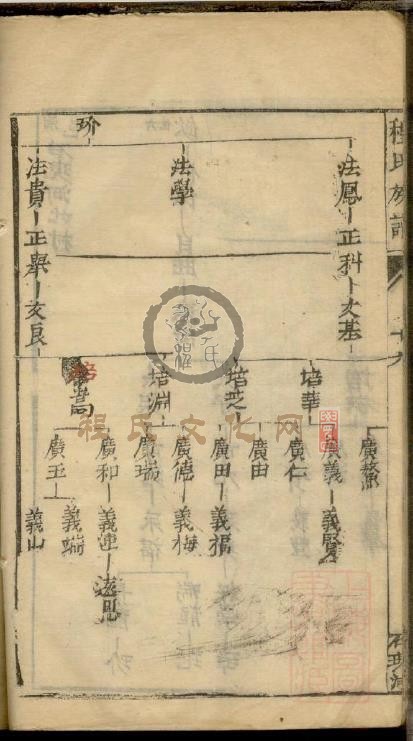 程氏族譜
玠
法鳳 正科 文基
法學
法貴 正舉 文良
培華
培芝
培淵
培嵩
廣鰲
廣義 義賢
廣仁
廣由
廣田 義福
廣德 義梅
廣瑞
廣和 義連
廣玉 義端
義山
程氏文化网